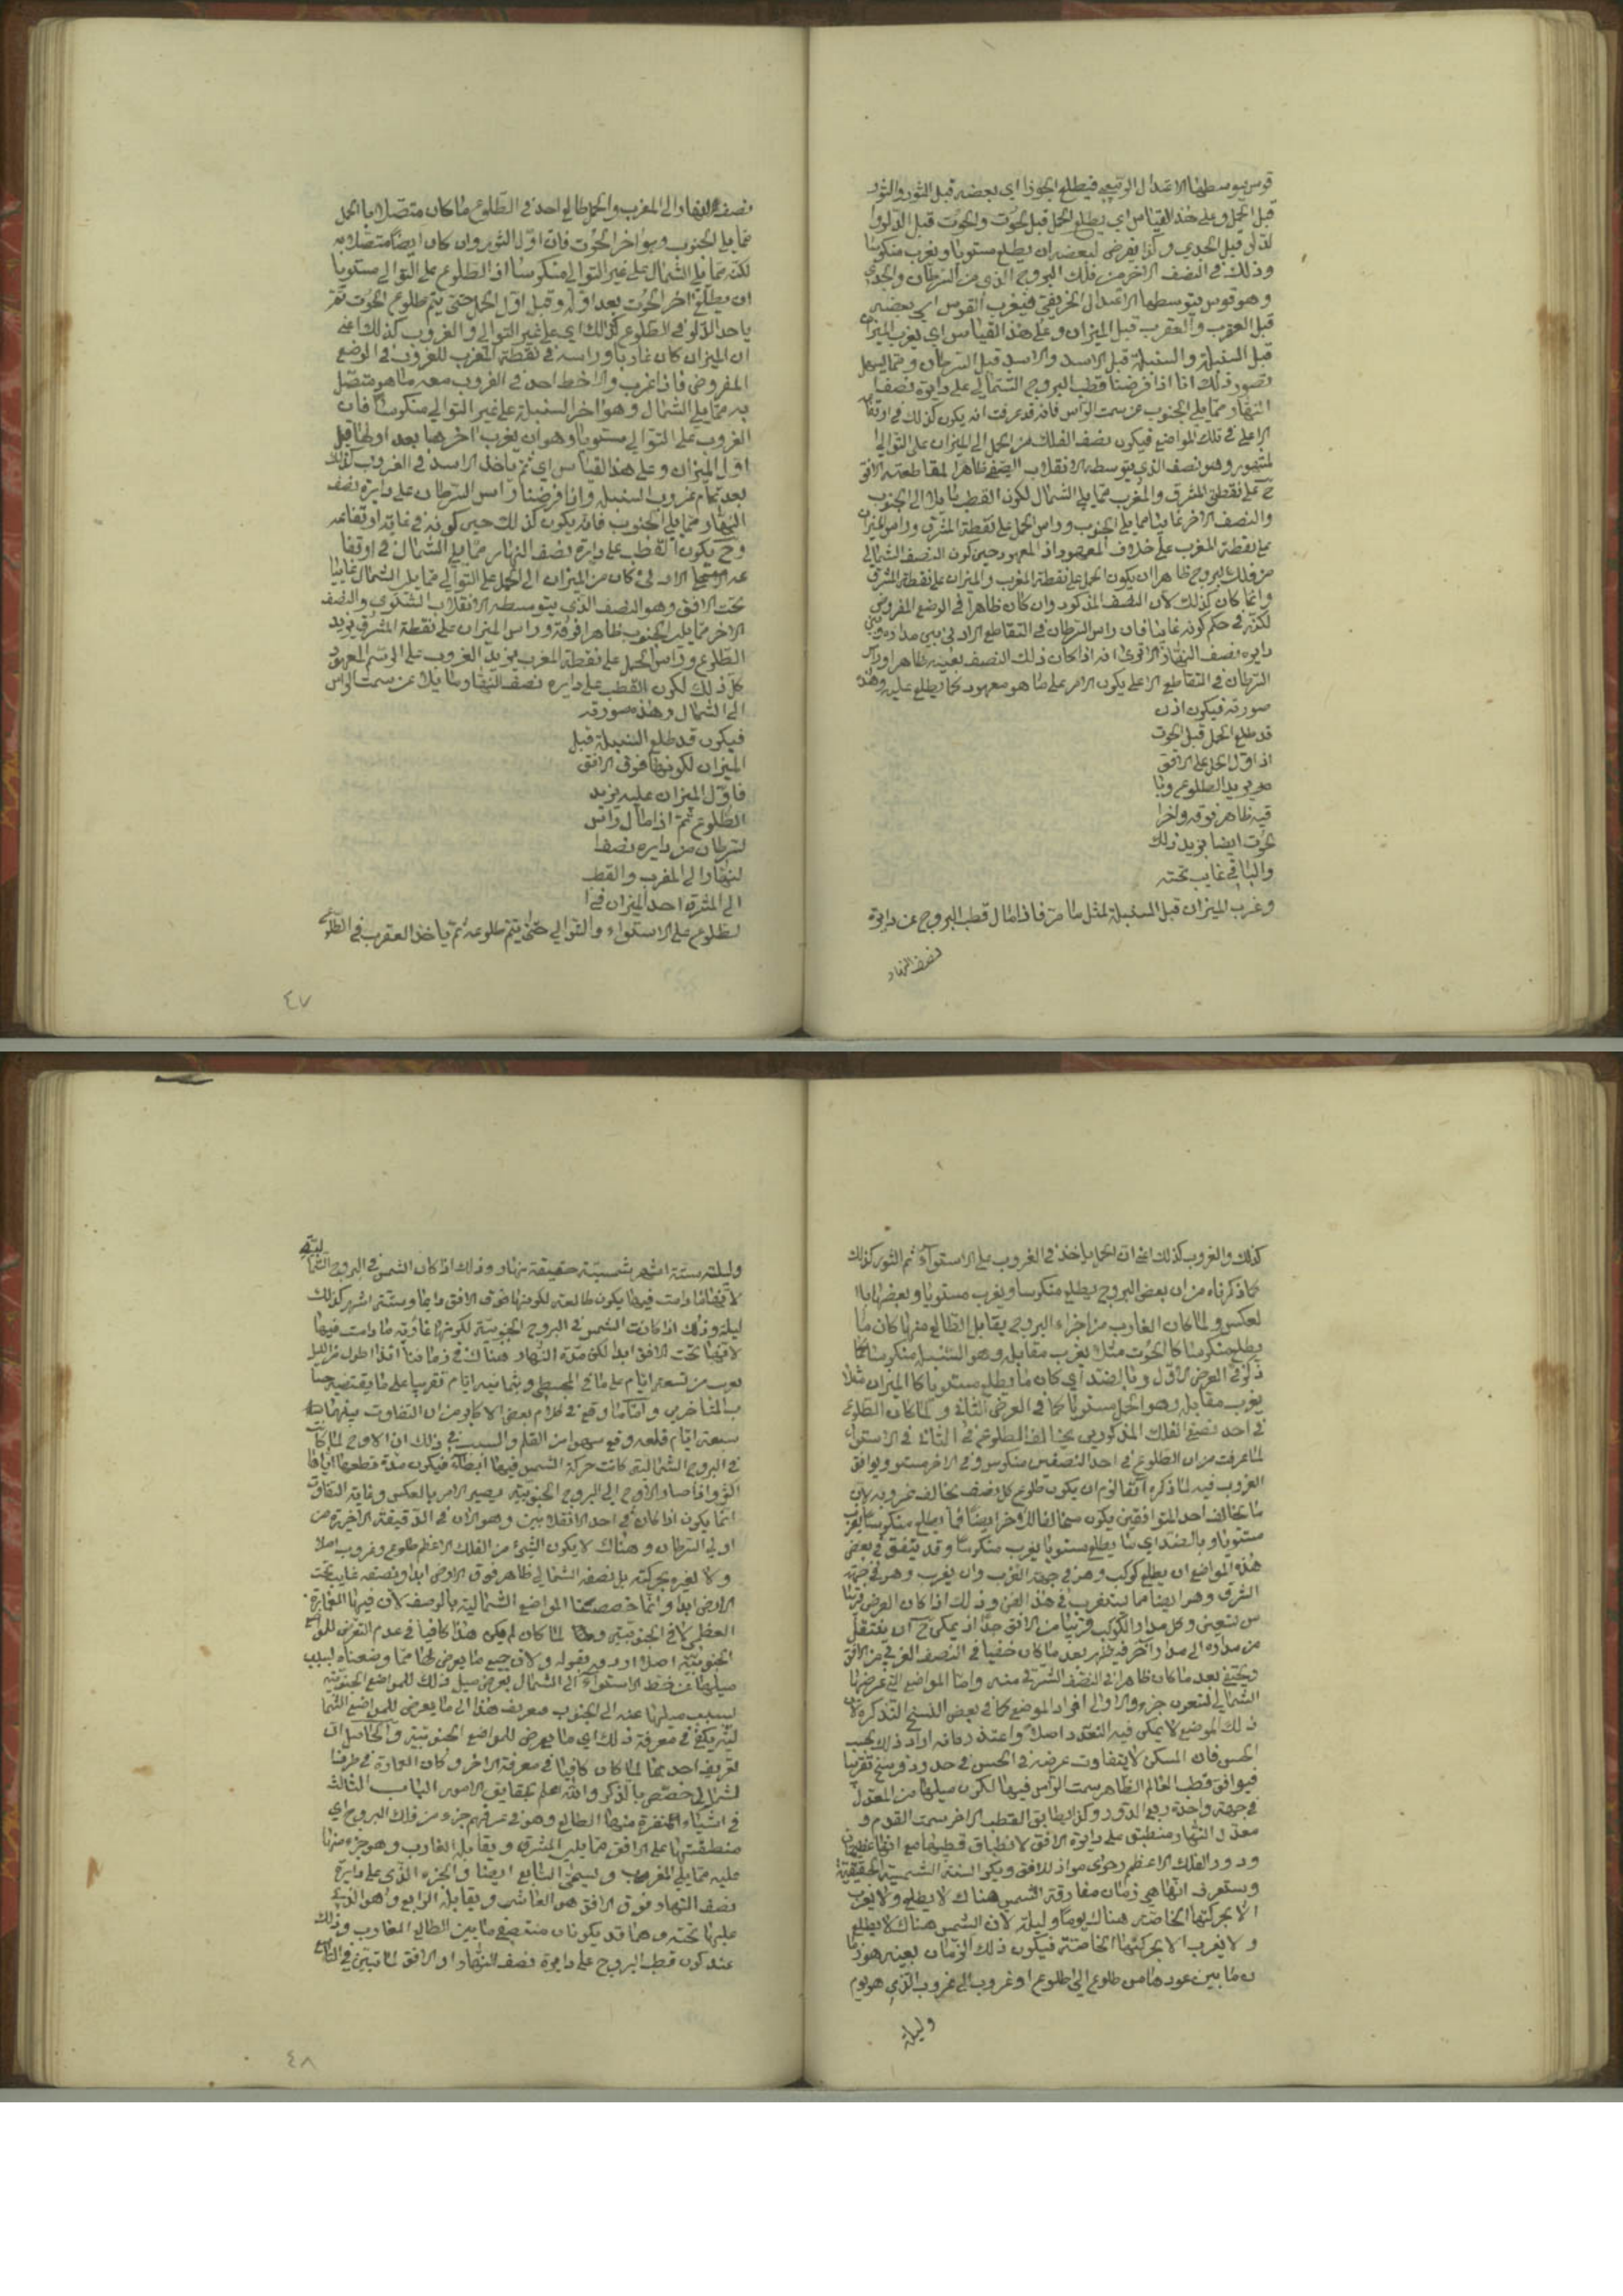 قوس يتوسطها الاعتدال الربيعي فيطلع الجوزا اي بعضه قبل الثور والثور
قبل الحمل وعلى هذا القياس اي يطلع الحمل قبل الحوت والحوت قبل الدلو
قبل الجدي وكذا يفرض لبعضه ان يطلع مستويا ويغرب منكوسا
وذلك في النصف الاخر من فلك البروج الذي من السرطان والجدي
وهو قوس يتوسطها الاعتدال الخريفي فيغرب القوس اي بعضه
قبل العقرب والعقرب قبل الميزان وعلى هذا القياس اي يغرب الميزان
قبل السنبلة والسنبلة قبل الاسد والاسد قبل السرطان ومما يسهل
تصور ذلك انا اذا فرضنا قطب البروج الشمالي على دايرة نصف
النهار مما يلي الجنوب عن سمت الراس فانه قد عرفت انه يكون كذلك في ارتفاعه
الاعلى في تلك المواضع فيكون نصف الفلك من الحمل الى الميزان على التوالي
وهو نصف الذي يتوسطه الانقلاب الصيفي ظاهرا لمقاطعته الافق
ح على نقطتي المشرق والمغرب مما يلي الشمال لكون القطب مايلا الى الجنوب
والنصف الاخر غايبا مما يلي الجنوب وراس الحمل على نقطة المشرق وراس الميزان
على نقطة المغرب على خلاف المعهود اذ المعهود حين كون النصف الشمالي
من فلك البروج ظاهرا ان يكون الحمل على نقطة المغرب والميزان على نقطة المشرق
وانما كان كذلك لان النصف المذكور وان كان ظاهرا في الوضع المفروض
لكنه في حكم كونه غايبا فان راس السرطان في التقاطع الادنى بين مداره وبين
دايرة نصف النهار الا ترى انه اذا كان ذلك النصف بعينه ظاهرا وراس
السرطان في التقاطع الاعلى يكون الامر على ما هو معهود كما يطلع عليه وهذه
صورته فيكون اذن
قد طلع الحمل قبل الحوت
اذ اول الحمل على الافق
يريد الطلوع وبا
قيه ظاهر فوقه واخر
الحوت ايضا يريد ذلك
والباقي غايب تحته
وغرب الميزان قبل السنبلة لمثل ما مر فاذا مال قطب البروج عن دايرة
نصف النهار
نصف النهار الى المغرب والحمل طالع احد في الطلوع ما كان متصلا بالحمل
مما يلي الجنوب وهو اخر الحوت فان اول الثور وان كان ايضا متصلا به
لكنه مما يلي الشمال على غير التوالي منكوسا اذ الطلوع على التوالي مستويا
ان يطلع اخر الحوت بعد اوله وقبل اول الحمل حتى يتم طلوع الحوت ثم
ياخذ الدلو في الطلوع كذلك اي على غير التوالي والغروب كذلك اعني
ان الميزان كان غاربا وراسه في نقطة المغرب للغروب في الوضع
المفروض فاذا غرب والاخط احد في الغروب معه ما هو متصل
به مما يلي الشمال وهو اخر السنبلة على غير التوالي منكوسا فان
الغروب على التوالي مستويا وهو ان يغرب اخرها بعد اولها قبل
اول الميزان وعلى هذا القياس اي ثم ياخذ الاسد في الغروب كذلك
بعد تمام غروب السنبلة وانا فرضنا راس السرطان على دايرة نصف
النهار مما يلي الجنوب فانه يكون كذلك حين كونه في غاية ارتفاعه
وح يكون القطب على دايرة نصف النهار مما يلي الشمال في ارتفا
عه الادنى كان من الميزان الى الحمل على التوالي مما يلي الشمال غايبا
تحت الافق وهو النصف الذي يتوسطه الانقلاب الشتوي والنصف
الاخر مما يلي الجنوب ظاهرا فوقه وراس الميزان على نقطة المشرق يريد
الطلوع وراس الحمل على نقطة المغرب يريد الغروب على الرسم المعهود
كل ذلك لكون القطب على دايرة نصف النهار ومايلا عن سمت الراس
الى الشمال وهذه صورته
فيكون قد طلع السنبلة قبل
الميزان لكونها فوق الافق
فاول الميزان عليه يريد
الطلوع ثم اذا مال راس
السرطان من دايرة نصف
النهار الى المغرب والقطب
الى المشرق احد الميزان في ا
لطلوع على الاستواء والتوالي حتى يتم طلوعه ثم ياخذ العقرب في الطلوع
٤٧
كذلك والغروب كذلك اعني ان الحمل ياخذ في الغروب على الاستواء ثم الثور كذلك
كما ذكرناه من ان بعض البروج يطلع منكوسا ويغرب مستويا وبعضها با
لعكس ولما كان الغارب من اجزاء البروج يقابل الطالع منها كان ما
يطلع منكوسا كالحوت مثلا يغرب مقابله وهو السنبلة منكوسا كما
ذكر في العرض الاول وبالضد اي كان ما يطلع مستويا كالميزان مثلا
يغرب مقابله وهو الحمل مستويا كما في العرض الثاني ولما كان الطلوع
في احد نصفي الفلك المذكورين يخالف الطلوع في الثاني في الاستواء
لما عرفت من ان الطلوع في احد النصفين منكوس وفي الاخر مستو ويوافق
الغروب فيه لما ذكره انفا لزم ان يكون طلوع كل نصف يخالف غروبه لان
ما يخالف احد المتوافقين يكون مخالفا للاخر ايضا فما يطلع منكوسا يغرب
مستويا وبالضد اي ما يطلع مستويا يغرب منكوسا وقد يتفق في بعض
هذه المواضع ان يطلع كوكب وهو في جهة الغرب وان يغرب وهو في جهة
الشرق وهو ايضا مما يستغرب في هذا الفن وذلك اذا كان العرض قريبا
من تسعين وكل مدار الكوكب قريبا من الافق جدا اذ يمكن ح ان ينتقل
من مداره الى مدار اخر فيظهر بعد ما كان خفيا في النصف الغربي من الافق
ويختفي بعد ما كان ظاهرا في النصف الشرقي منه واما المواضع التي عرضها
الشمالي تسعون جزء والاولى افراد الموضع كما في بعض النسخ التذكرة لان
ذلك الموضع لا يمكن فيه التعدد اصلا واعتذر بانه اراد ذلك بحسب
الحس فان المسكن لا يتفاوت عرضه في الحس في حدود فرسخ تقريبا
فيوافق قطب العالم الظاهر سمت الراس فيها لكون ميلها من المعدل
في جهة واحدة ربع الدور وكذا يطابق القطب الاخر سمت القدم و
معدل النهار منطبق على دايرة الافق لانطباق قطبيهما مع انهما عظيمتان
ودور الفلك الاعظم رحوي مواز للافق ويكون السنة الشمسية الحقيقية
وستعرف انها هي زمان مفارقة الشمس هناك لا يطلع ولا يغرب
الا بحركتها الخاصة هناك يوما وليلة لان الشمس هناك لا يطلع
ولا يغرب الا بحركتها الخاصة فيكون ذلك الزمان بعينه هو زما
ن ما بين عودها من طلوع الى طلوع او غروب الى غروب الذي هو يوم
وليلة
وليلة ستة اشهر شمسية حقيقية نهار وذلك اذا كان الشمس في البروج الشمالية
لانها ما دامت فيها يكون طالعة لكونها فوق الافق دايما وستة اشهر كذلك
ليلة وذلك اذا كانت الشمس في البروج الجنوبية لكونها غاربة ما دامت فيها
لانها تحت الافق ابدا لكن مدة النهار هناك في زماننا هذا اطول من الليل
بقرب من تسعة ايام على ما في المجسطي وثمانية ايام تقريبا على ما يقتضيه حسا
ب المتاخرين واما ما وقع في كلام بعض الاكابر من ان التفاوت بينهما
سبعة ايام فلعله وقع سهوا من القلم والسبب في ذلك ان الاوج لما كان
في البروج الشمالية كانت حركة الشمس فيها ابطأ فيكون مدة قطعها اياها
اكثر واذا صار الاوج الى البروج الجنوبية يصير الامر بالعكس وغاية التفاوت
انما يكون اذا كان في احد الانقلابين وهو الان في الدقيقة الاخيرة من
اولى السرطان وهناك لا يكون لشيء من الفلك الاعظم طلوع وغروب اصلا
ولا لغيره بحركته بل نصفه الشمالي ظاهر فوق الارض ابدا ونصفه غايب تحت
الارض ابدا وانما خصصنا المواضع الشمالية بالوصف لان فيها العمارة
العظمى لا في الجنوبية ولما كان لم يكن هذا كافيا في عدم التعرض للمواضع
الجنوبية اصلا اورد بقوله ولان جميع ما يعرض لها مما وصفناه بسبب
ميلها عن خط الاستواء الى الشمال يعرض مثل ذلك للمواضع الجنوبية
بسبب ميلها عنه الى الجنوب فتعريف هذا الى ما يعرض للمواضع الشما
لية يكفي في معرفة ذلك اي ما يعرض للمواضع الجنوبية والحاصل ان
تعريف احدهما لما كان كافيا في معرفة الاخر وكان العمارة في طرف
الشمالي خصص بالذكر والله اعلم بحقايق الامور الباب الثالث
في اشياء متفرقة منها الطالع وهو في عرفهم جزء من فلك البروج اي
منطقتها على الافق مما يلي المشرق ويقابله الغارب وهو جزء منها
عليه مما يلي المغرب ويسمى السابع ايضا والجزء الذي على دايرة
نصف النهار فوق الافق هو العاشر ويقابله الرابع وهو الذي
عليها تحته وهما قد يكونان منتصفي ما بين الطالع الغارب وذلك
عند كون قطب البروج على دايرة نصف النهار او الافق لما تبين في
٤٨